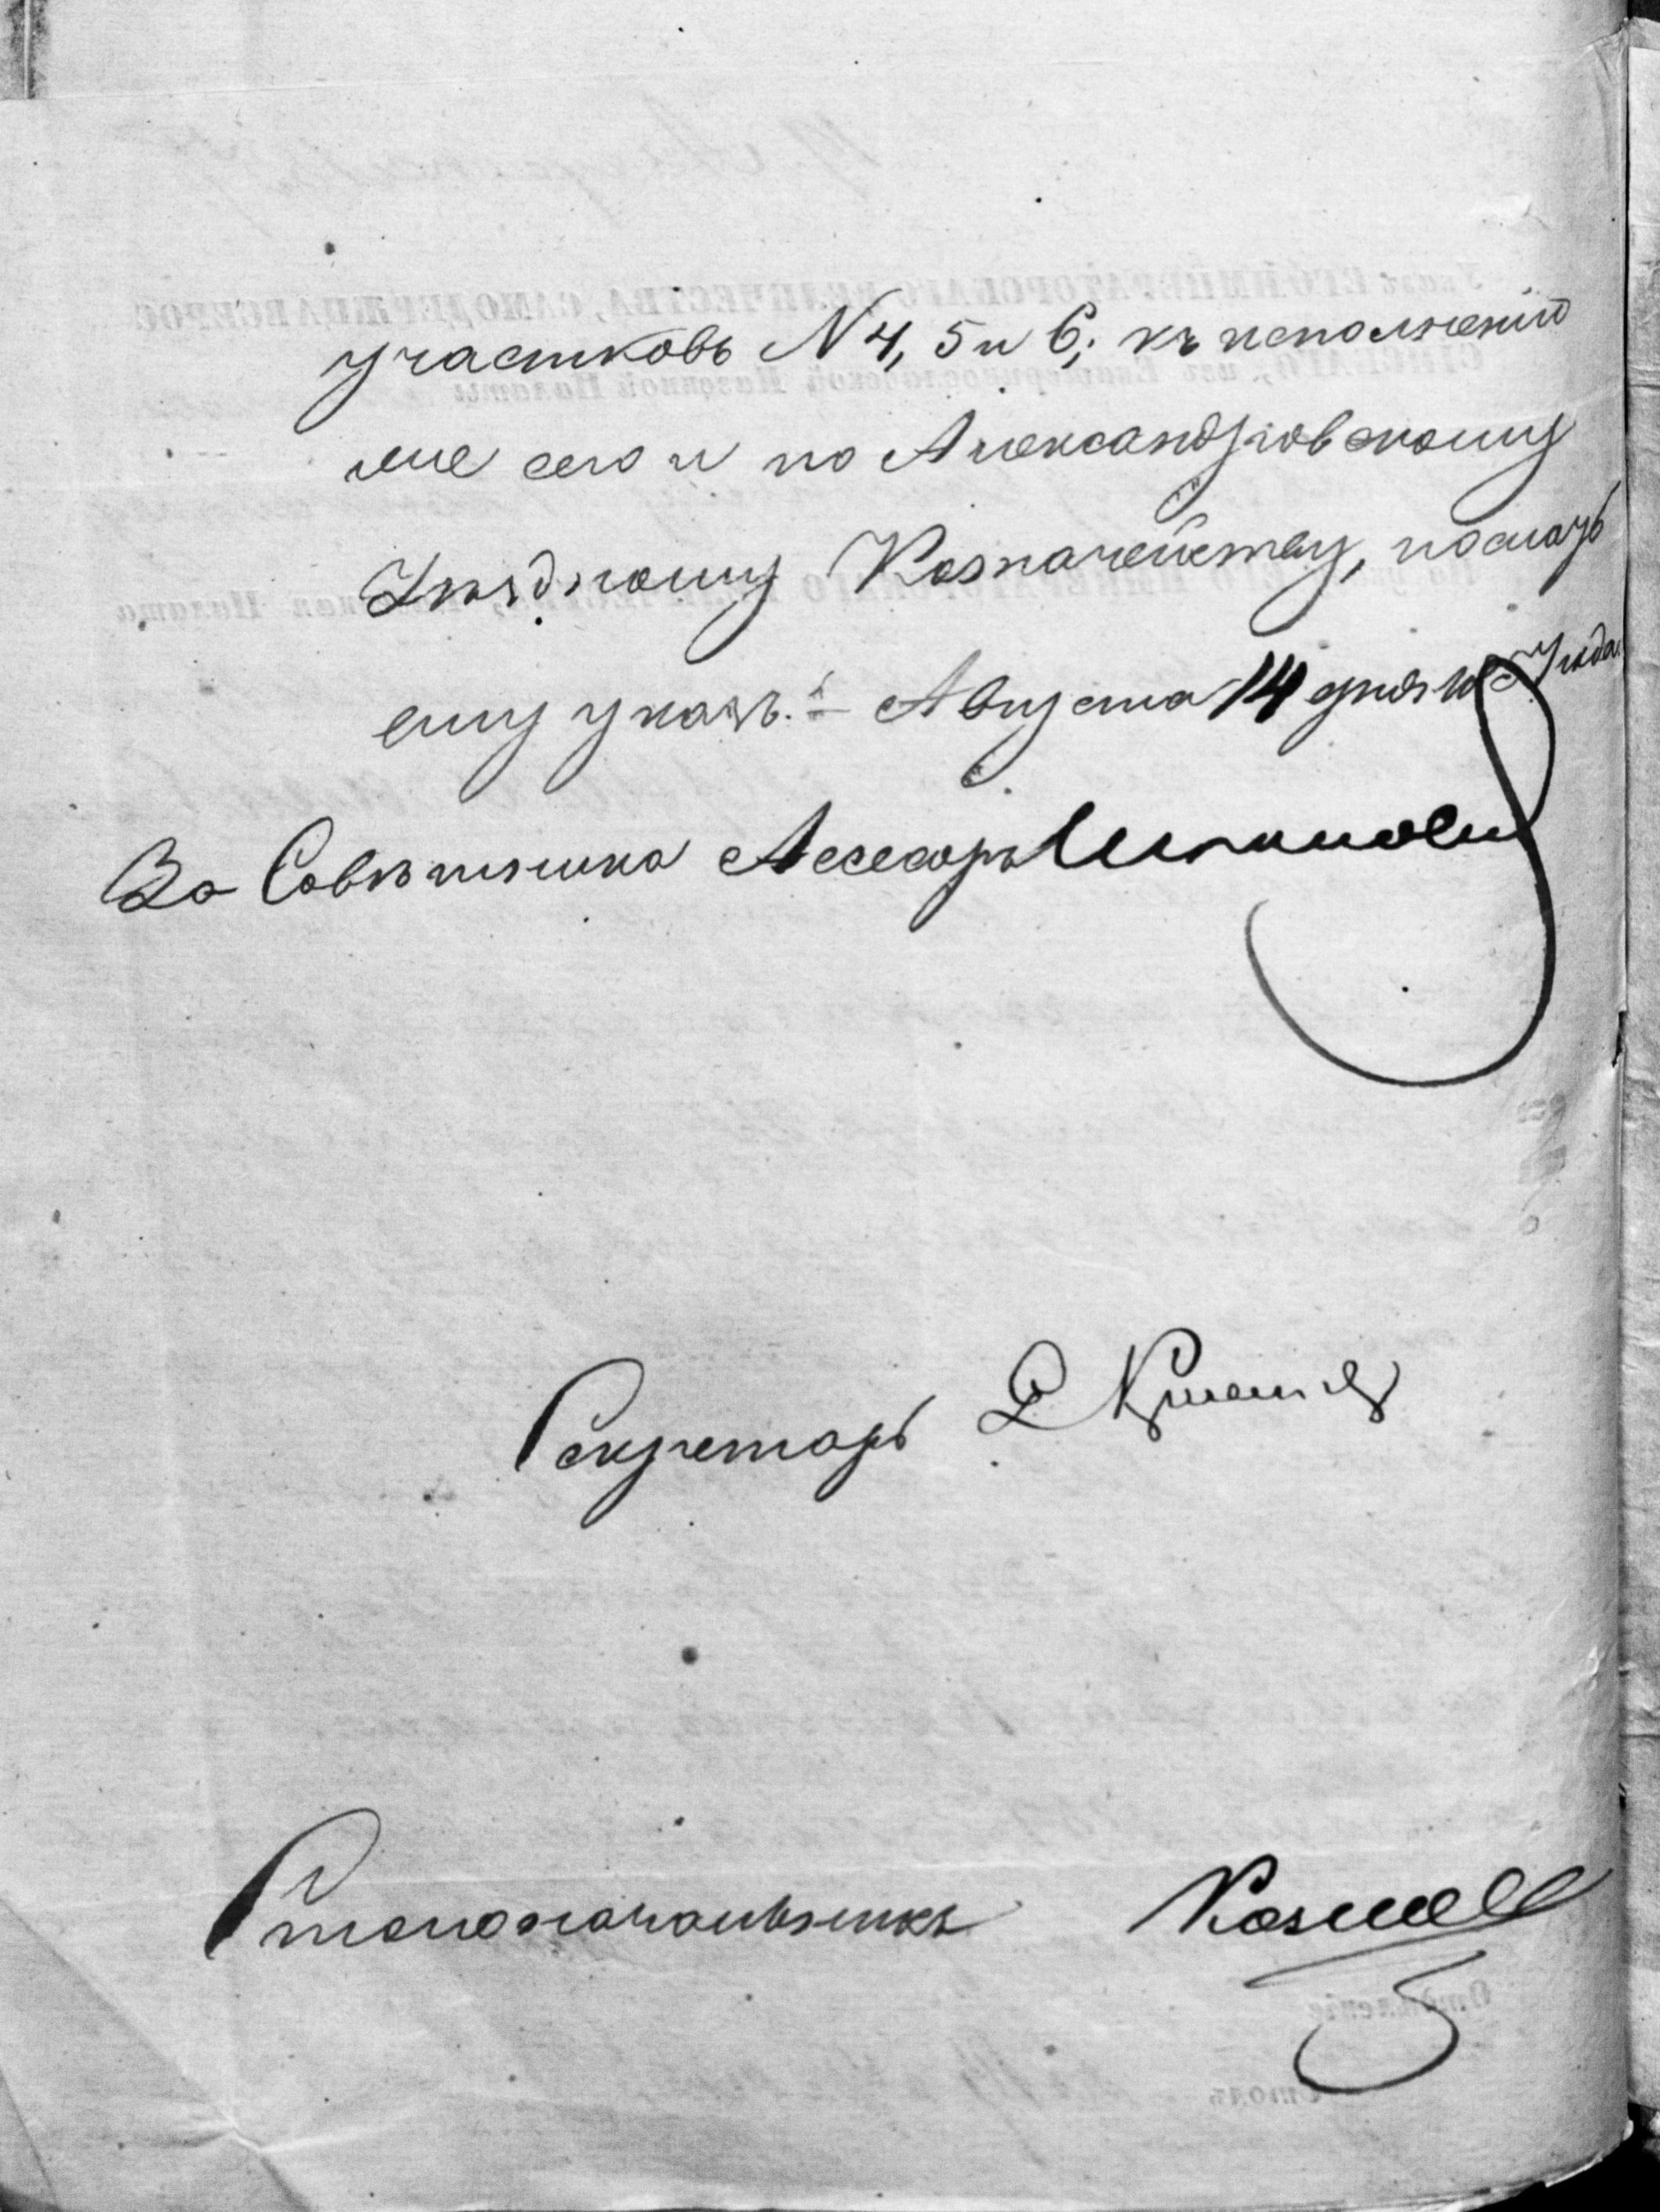 участковъ N 4, 5 и 6; къ исполненію
же сего и по Александровскому
Уѣздному Казначейству, послать
ему указъ. Августа 14 дня
За Совѣтника Ассесоръ
Секретарь
Столоначальникъ